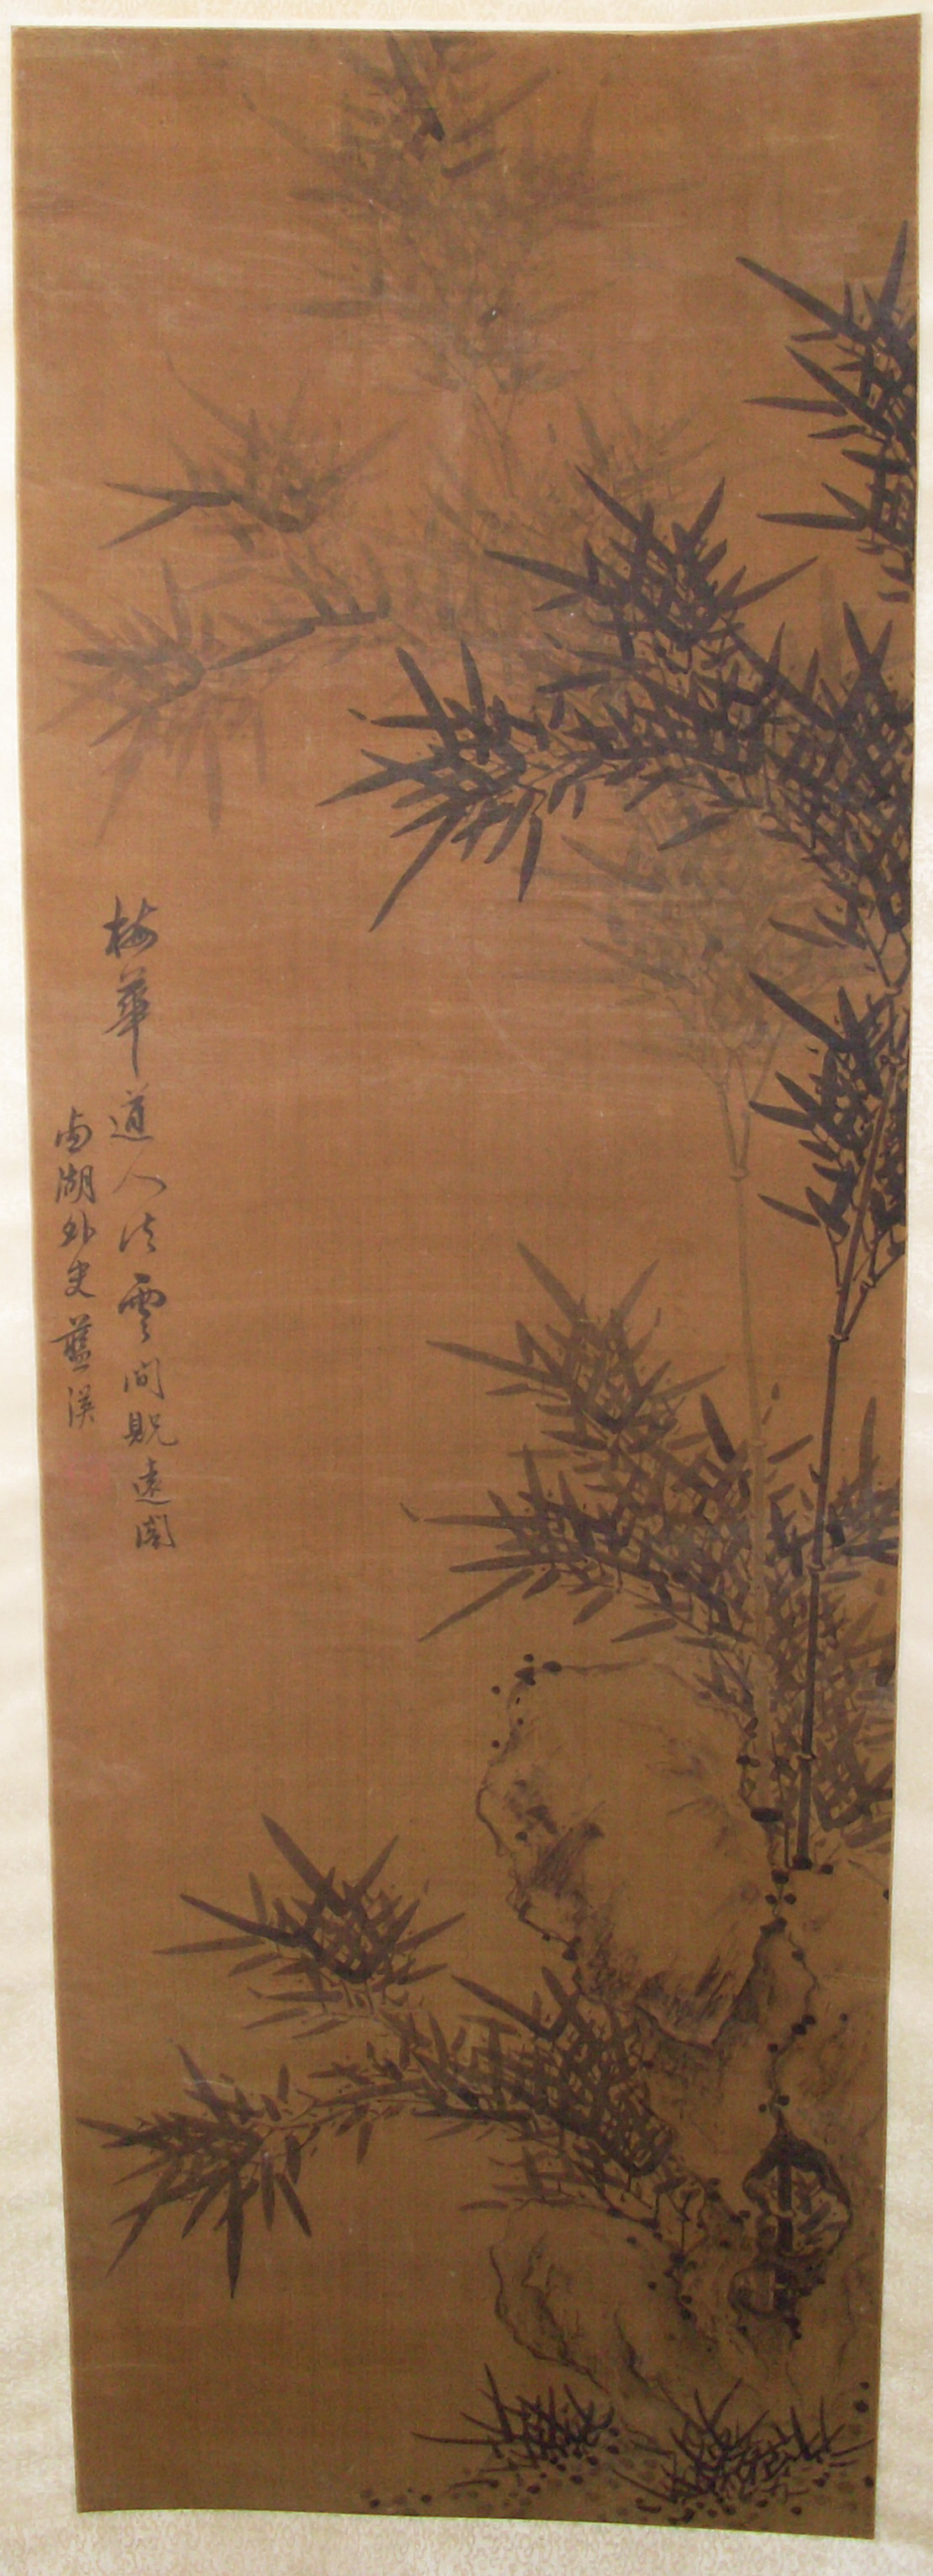 梅華道人法雲間貺遠閣
西湖外史藍瑛